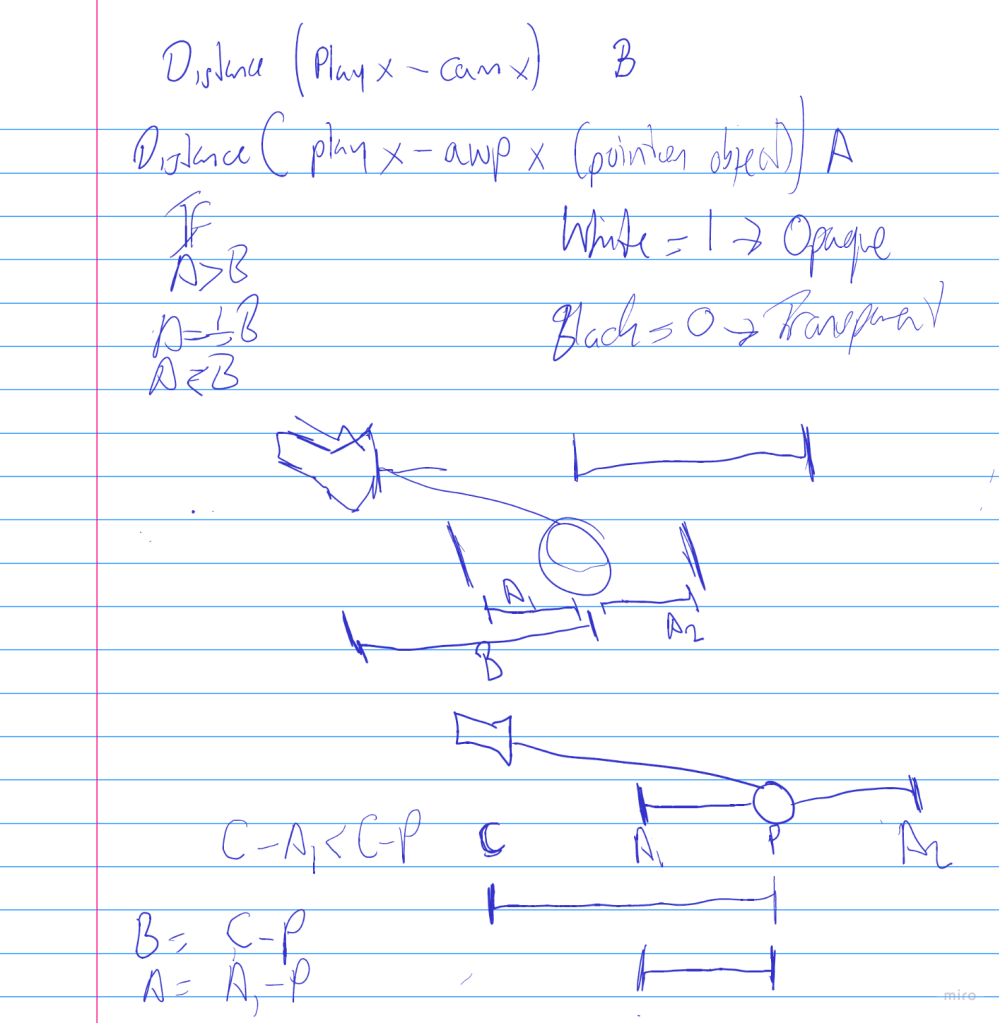 Distance (Play x - cam x) B
Distance ( play x - awp x (pointer object)) A
IF
A > B
White = 1 → Opaque
Black = 0 → Transparent
A ≤ B
A1
A2
B
C - A1 < C - P
C
A1
P
A2
B = C - P
A = A1 - P
miro